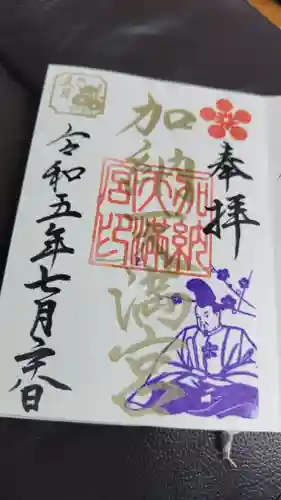 奉拝
加納天満宮
加納
天満
宮印
令和五年七月二日